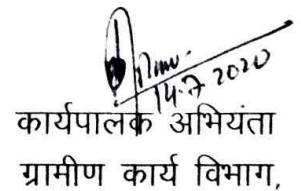 14-7 2020
कार्यपालक अभियंता
ग्रामीण कार्य विभाग,